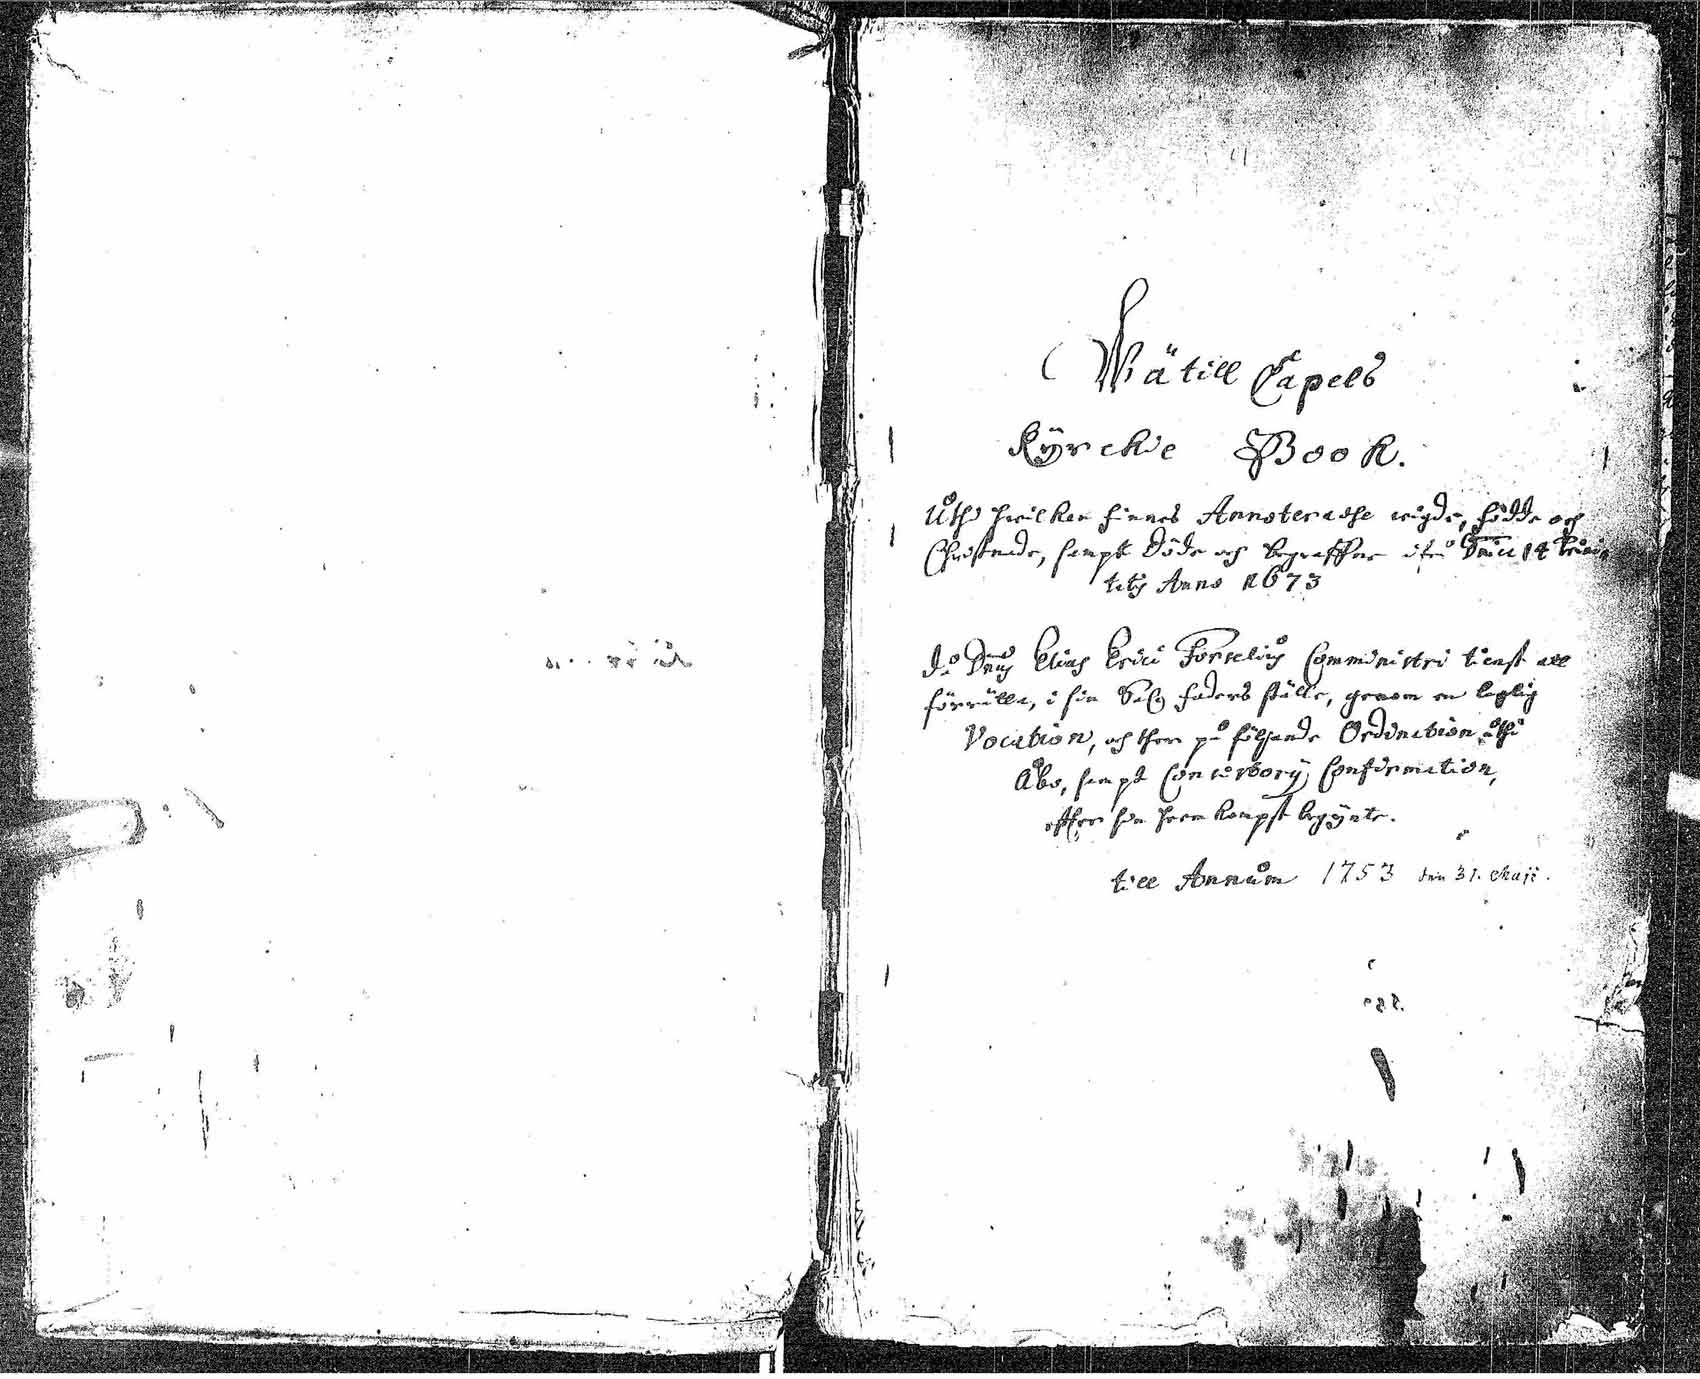 Wätill Capels
Kÿrckie Book.
Uthi hwilken finnes Annoteradhe wigde, födde och
Christnade, sampt döde och begraffne ifrå Dnica 14 Trini
tatis Anno 1673
då Dnus Elias Erici Forselius Comministri tienst att
förrätta, i sin Sal. faders ställe, genom en laglig
Vocation, och ther på fölljande Ordination uthi
Åbo, sampt Consistorij Confirmation,
effter sin heemkompst begÿnte.
till Annum 1753 den 31. Maji.